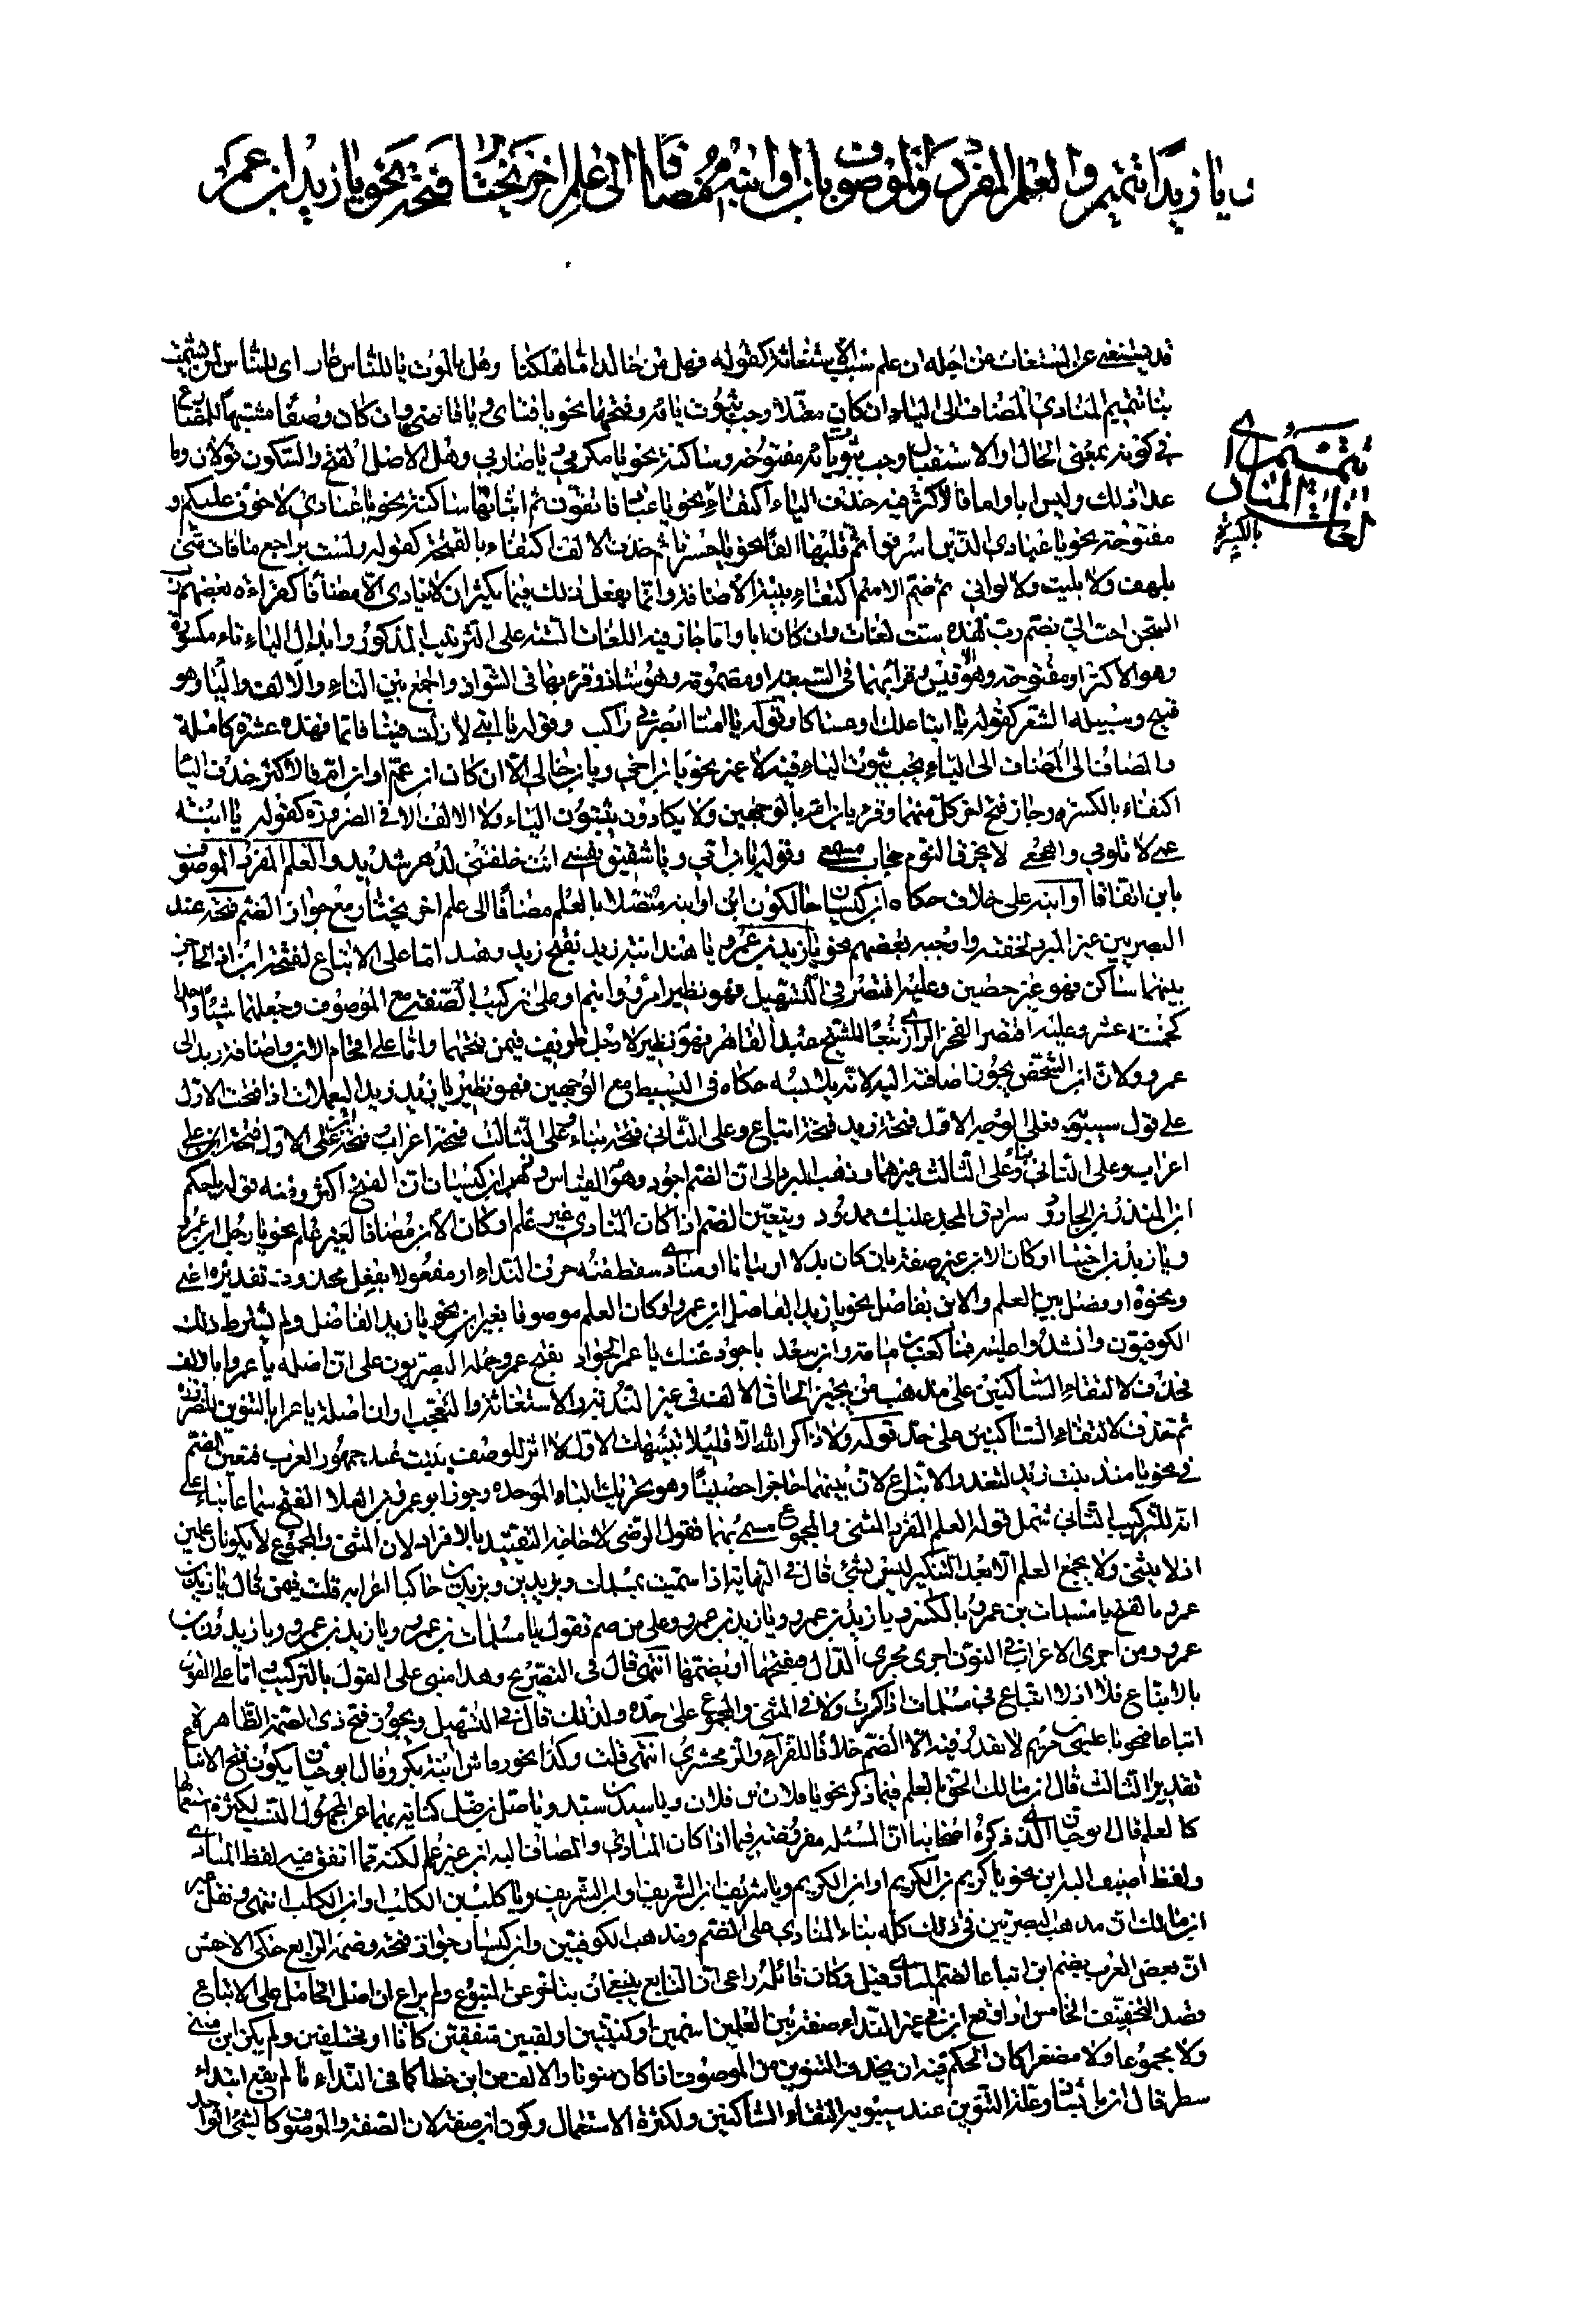 يا زيدا تتميم والعلم المفرد ان وصف بابن او ابنه مضافا الى علم اخر يختار فتحه نحو يا زيد بن عمر
قد يستغنى عن المستغاث من اجله ان علم سبب الاستغاثة كقوله فهل من خالد اما هلكنا وهل بالموت يا للناس عار اى للناس
تتميم المنادى المضاف الى الياء ان كان معتلا وجب ثبوت يائه وفتحها نحو يا فتاى ويا قاضى وان كان وصفا مشبها للمضارع
فى كونه بمعنى الحال او الاستقبال وجب ثبوت يائه مفتوحة وساكنة نحو يا مكرمى ويا ضاربى وهل الاصل الفتح والسكون قولان وما
عدا ذلك وليس ابا واما فالاكثر فيه حذف الياء اكتفاء نحو يا عباد فاتقون ثم اثباتها ساكنة نحو يا عبادى لا خوف عليكم و
مفتوحة نحو يا عبادى الذين اسرفوا ثم قلبها الفا نحو يا حسرتا ثم حذف الالف اكتفاء بالفتحة كقوله ولست براجع ما فات منى
بلهف ولا بليت ولا لوانى ثم ضم الاسم اكتفاء بنية الاضافة وانما يفعل ذلك فيما يكثر ان لا ينادى الا مضافا كقراءة بعضهم
السجن احب الى بضم رب فهذه ست لغات وان كان ابا واما جاز فيه اللغات الستة على الترتيب المذكور وابدال الياء تاء مكسورة
وهو الاكثر او مفتوحة وهو الاقيس وقرئ بهما فى السبعة او مضمومة وهو شاذ وقرئ بها فى الشواذ واجمع بين التاء والالف والياء وهو
قبيح وسبيله الشعر كقوله يا ابتا علك او عساكا وقوله يا امتا ابصرنى راكب وقوله يا ابتى لا زلت فينا فانما فهذه عشرة كاملة
والمضاف الى المضاف الى الياء يجب ثبوت الياء فيه لا غير نحو يا بن اخى ويا بن خالى الا ان كان ابن عم او ابن ام فالاكثر حذف الياء
اكتفاء بالكسرة وجاز فتح اخر كل منهما وقرئ يا بن ام بالوجهين ولا يكادون يثبتون الياء ولا الالف الا فى الضرورة كقوله يا ابنة
عمى لا تلومى واهجعى لا يخرق اللوم حجاب مسمعى وقوله يا بن امى ويا شقيق نفسى انت خلفتنى لدهر شديد والعلم المفرد الموصوف
بابن اتفاقا او ابنه على خلاف حكاه ابن كيسان حالكون ابن او ابنه متصلا بالعلم مضافا الى علم اخر يختار مع جواز الضم فتحه عند
البصريين غير المبرد لخفته واوجبه بعضهم نحو يا زيد بن عمرو ويا هند ابنة زيد بفتح زيد وهند اما على الاتباع لفتحة ابن اذ الحاجز
بينهما ساكن فهو غير حصين وعليه اقتصر فى التسهيل فهو نظير امرؤ وابنم او على تركيب الصفة مع الموصوف وجعلهما شيئا واحدا
كخمسة عشر وعليه اقتصر الفخر الرازى تبعا للشيخ عبد القاهر فهو نظير لا رجل ظريف فيمن فتحهما واما على اقحام الابن واضافة زيد الى
عمرو ولان ابن الشخص يجوز اضافته اليه لانه يلابسه حكاه فى البسيط مع الوجهين فهو نظير يا زيد زيد اليعملات اذا فتحت الاول
على قول سيبويه فعلى الوجه الاول فتحة زيد فتحة اتباع وعلى الثانى فتحة بناء وعلى الثالث فتحة اعراب وفتحة ابن على الاول فتحة
اعراب وعلى الثانى بناء وعلى الثالث غيرهما وذهب المبرد الى ان الضم اجود وهو القياس وزعم ابن كيسان ان الفتح اكثر ومنه قوله يا حكم
ابن المنذر بن الجارود سرادق المجد عليك ممدود ويتعين الضم اذا كان المنادى غير علم او كان الابن مضافا لغير علم نحو يا رجل ابن عمرو
ويا زيد بن اخينا او كان الابن غير صفة بان كان بدلا او بيانا او منادى سقط منه حرف النداء او مفعولا بفعل محذوف تقديره اعنى
ونحوه او فصل بين العلم والابن بفاصل نحو يا زيد الفاضل ابن عمرو او كان العلم موصوفا بغير ابن نحو يا زيد الفاضل ولم يشترط ذلك
الكوفيون وانشدوا عليه فما كعب بن مامة وابن سعد باجود منك يا عمر الجوادا بفتح عمر وحمله البصريون على ان اصله يا عمرا بالالف
فحذف لالتقاء الساكنين على مذهب من يجيز الحاق الالف فى غير الندبة والاستغاثة والتعجب وان اصله يا عمرا بالتنوين للضرورة
ثم حذف لالتقاء الساكنين على حد قوله ولا ذاكر الله الا قليلا تنبيهات الاول لا اثر للوصف ببنت عند جمهور العرب فتعين الضم
فى نحو يا هند بنت زيد لتعذر الاتباع لان بينهما حاجزا حصينا وهو تحريك الباء الموحدة وجوز ابو عمرو بن العلا الفتح سماعا بناء على
انه للتركيب الثانى شمل قوله العلم المفرد المثنى والمجموع مسمى بهما فقول الرضى لا حاجة لتقييده بالافراد لان المثنى والمجموع لا يكونان علمين
اذ لا يثنى ولا يجمع العلم الا بعد التنكير ليس بشئ قال فى النهاية اذا سميت بمسلمات وبزيدين وبزيدون حاكيا اعرابه قلت فيمن قال يا زيد بن
عمرو بالفتح يا مسلمات بن عمرو بالكسر ويا زيدين بن عمرو ويا زيدين بن عمرو وعلى من ضم تقول يا مسلمات بن عمرو ويا زيدان بن عمرو ويا زيدون بن
عمرو ومن اجرى الاعراب فى النون اجرى مجرى الدال فيفتحها او يضمها انتهى قال فى التصريح وهذا مبنى على القول بالتركيب واما على القول
بالاتباع فلا اذ لا اتباع فى مسلمات اذا كسرت ولا فى المثنى والمجموع على حده ولذلك قال فى التسهيل ويجوز فتح ذى الضمة الظاهرة
اتباعا فنحو يا عيسى بن مريم لا يقدر فيه الا الضم خلافا للفراء والزمخشرى انتهى قلت وكذا نحو رقاش ابنة بكر وقال ابو حيان يكون فتح
تقديرا الثالث قال ابن مالك الحق بالعلم فيما ذكر نحو يا فلان بن فلان ويا سيد بن سيد ويا ضل بن ضل كناية بهما عن المجهول النسب لكثرة استعمالها
كالعلم قال ابو حيان الذى ذكره اصحابنا ان المسئلة مفروضة فيما اذا كان المنادى والمضاف اليه ابن غير علم لكنه مما اتفق فيه لفظ المنادى
ولفظ اضيف اليه ابن نحو يا كريم بن الكريم او ابن الكريم ويا شريف ابن الشريف او ابن الشريف ويا كليب بن الكليب او ابن الكلب انتهى ونقل غير
ابن مالك ان مذهب البصريين فى ذلك كله بناء المنادى على الضم ومذهب الكوفيين وابن كيسان جواز فتحه وضمه الرابع حكى الاخفش
ان بعض العرب يضم ابن اتباعا لضم المنادى وقيل وكان قائله راعى ان التابع ينبغى ان يتاخر عن المتبوع ولم يراع ان اصل الحامل على الاتباع
قصد التخفيف الخامس اذا وقع ابن فى غير النداء صفة بين العلمين اسمين او كنيتين او لقبين متفقتين كانا او مختلفين ولم يكن ابن مثنى
ولا مجموعا ولا مصغرا كان الحكم فيه ان يحذف التنوين من الموصوف اذا كان منونا والالف من ابن خطا كما فى النداء ما لم يقع ابتداء
سطر قال ابن بابشاذ وعلة التنوين عند سيبويه التقاء الساكنين ولكثرة الاستعمال وكون ابن صفة لان الصفة والموصوف كالشئ الواحد
تتميم فى
لغات المنادى